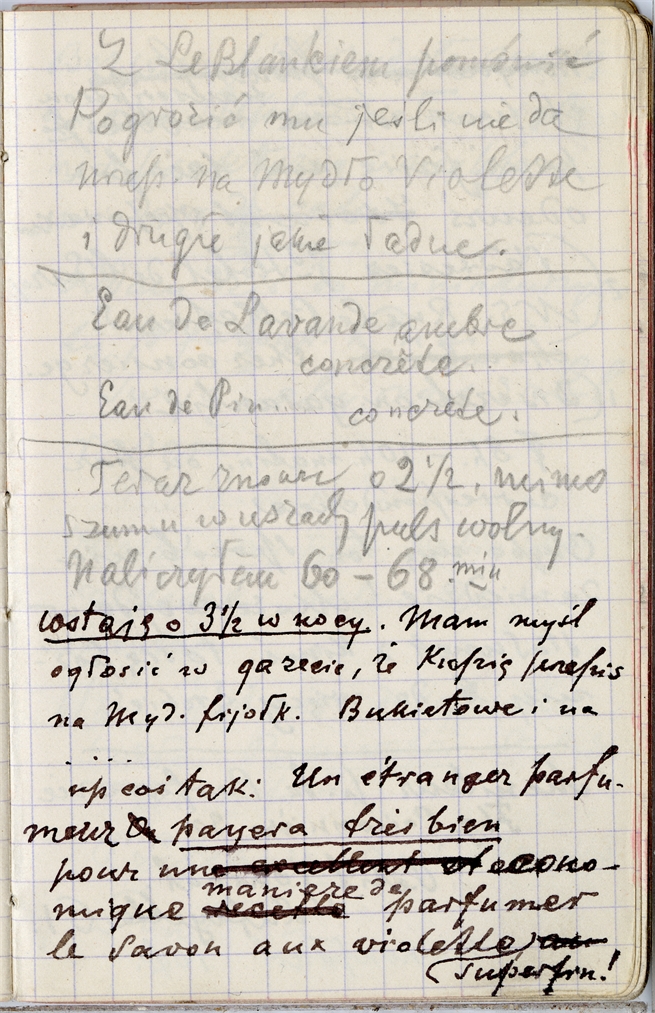 Z LeBlankiem pomówić
Pogrozić mu jeśli nie da
przep. na mydło Violette
i drugie jakie ładne.
Eau de Lavande ambre
concrète.
Eau de Pin... concrète.
Teraz znowu o 2 1/2, mimo
szumu w uszach puls wolny.
Naliczyłem 60 – 68 min
wstaję o 3 1/2 w nocy. Mam myśl
ogłosić w gazecie, że kupię przepis
na myd. fijołk. Bukietowe i na
....
np coś tak: Un étranger parfu-
meur payera très bien
pour une excellent et econo-
mique recette maniere de parfumer
le savon aux violette au
superfin!